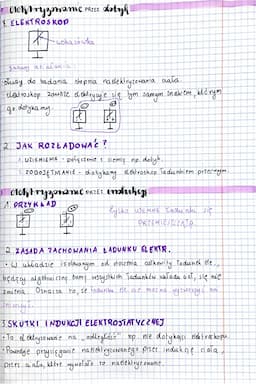 elektryzowanie PRZEZ dotyk
1. ELEKTROSKOP
wskazówka
służy do badania stopnia naelektryzowania ciała
elektroskop zawsze elektryzuje się tym samym znakiem, którym
go dotykamy.
2. JAK ROZŁADOWAĆ?
1. UZIEMIENIE - połączenie z ziemią np. dotyk
2. ZOBOJĘTNIANIE - dotykamy elektroskop ładunkiem przeciwnym
elektryzowanie PRZEZ indukcję
1. PRZYKŁAD
tylko UJEMNE ładunki się
PRZEMIESZCZAJĄ
2. ZASADA ZACHOWANIA ŁADUNKU ELEKTR.
• W układzie izolowanym od otoczenia całkowity ładunek ele.,
będący algebraiczną sumą wszystkich ładunków układu ciał, się nie
zmienia. Oznacza to, że ładunku ele. nie można wytworzyć ani
zniszczyć.
3. SKUTKI INDUKCJI ELEKTROSTATYCZNEJ
• To elektryzowanie na „odległość" np. nie dotykając elektroskopu.
• Powoduje przyciąganie naelektryzowanego przez indukcję ciała,
przez ciało, które wywołało to naelektryzowanie.